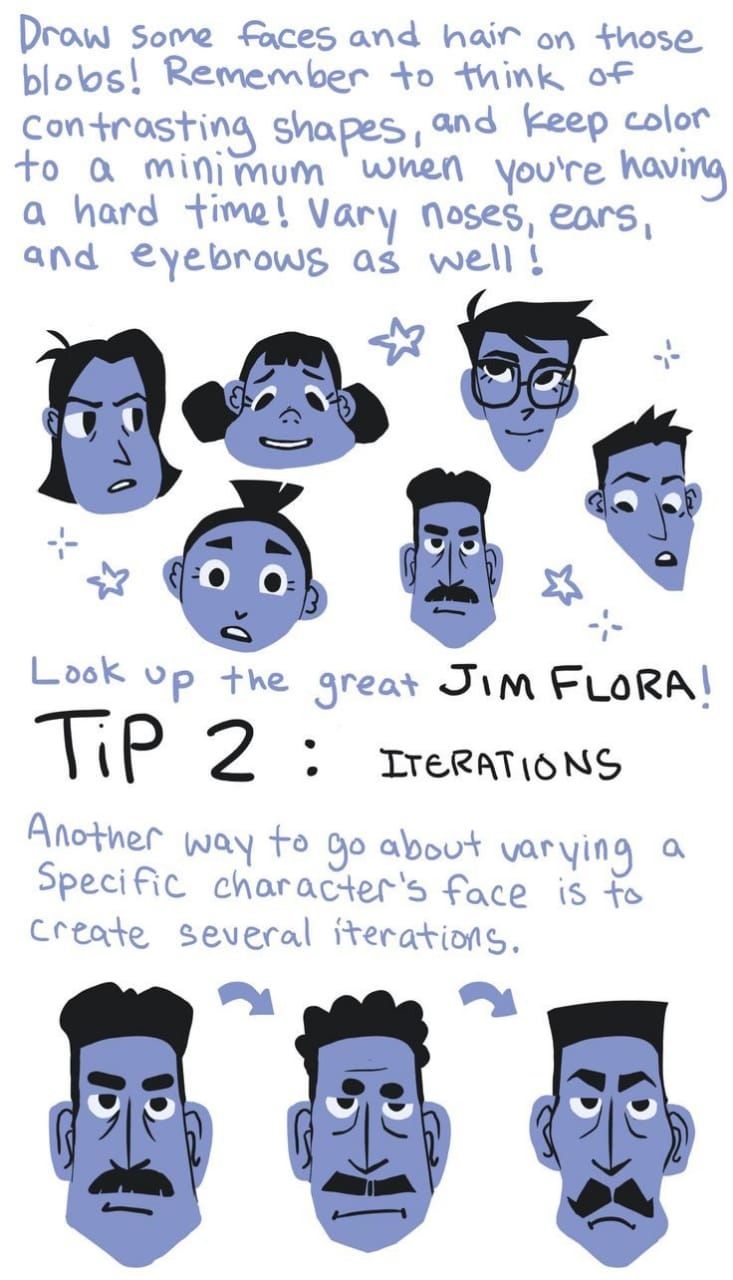 Draw some faces and hair on those
blobs! Remember to think of
contrasting shapes, and keep color
to a minimum when you're having
a hard time! Vary noses, ears,
and eyebrows as well!
Look up the great JIM FLORA!
TiP 2 : ITERATIONS
Another way to go about varying a
Specific character's face is to
create several iterations.